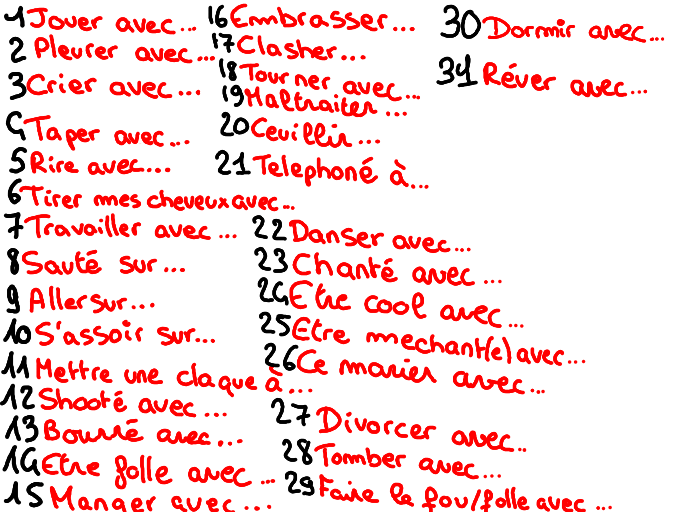 1 Jouer avec...
2 Pleurer avec...
3 Crier avec...
4 Taper avec...
5 Rire avec...
6 Tirer mes cheveux avec...
7 Travailler avec...
8 Sauté sur...
9 Aller sur...
10 S'assoir sur...
11 Mettre une claque à...
12 Shooté avec...
13 Bourré avec...
14 Etre folle avec...
15 Manger avec...
16 Embrasser...
17 Clasher...
18 Tourner avec...
19 Maltraiter...
20 Ceuillir...
21 Telephoné à...
22 Danser avec...
23 Chanté avec...
24 Etre cool avec...
25 Etre mechant(e) avec...
26 Ce marier avec...
27 Divorcer avec...
28 Tomber avec...
29 Faire le fou/folle avec...
30 Dormir avec...
31 Réver avec...